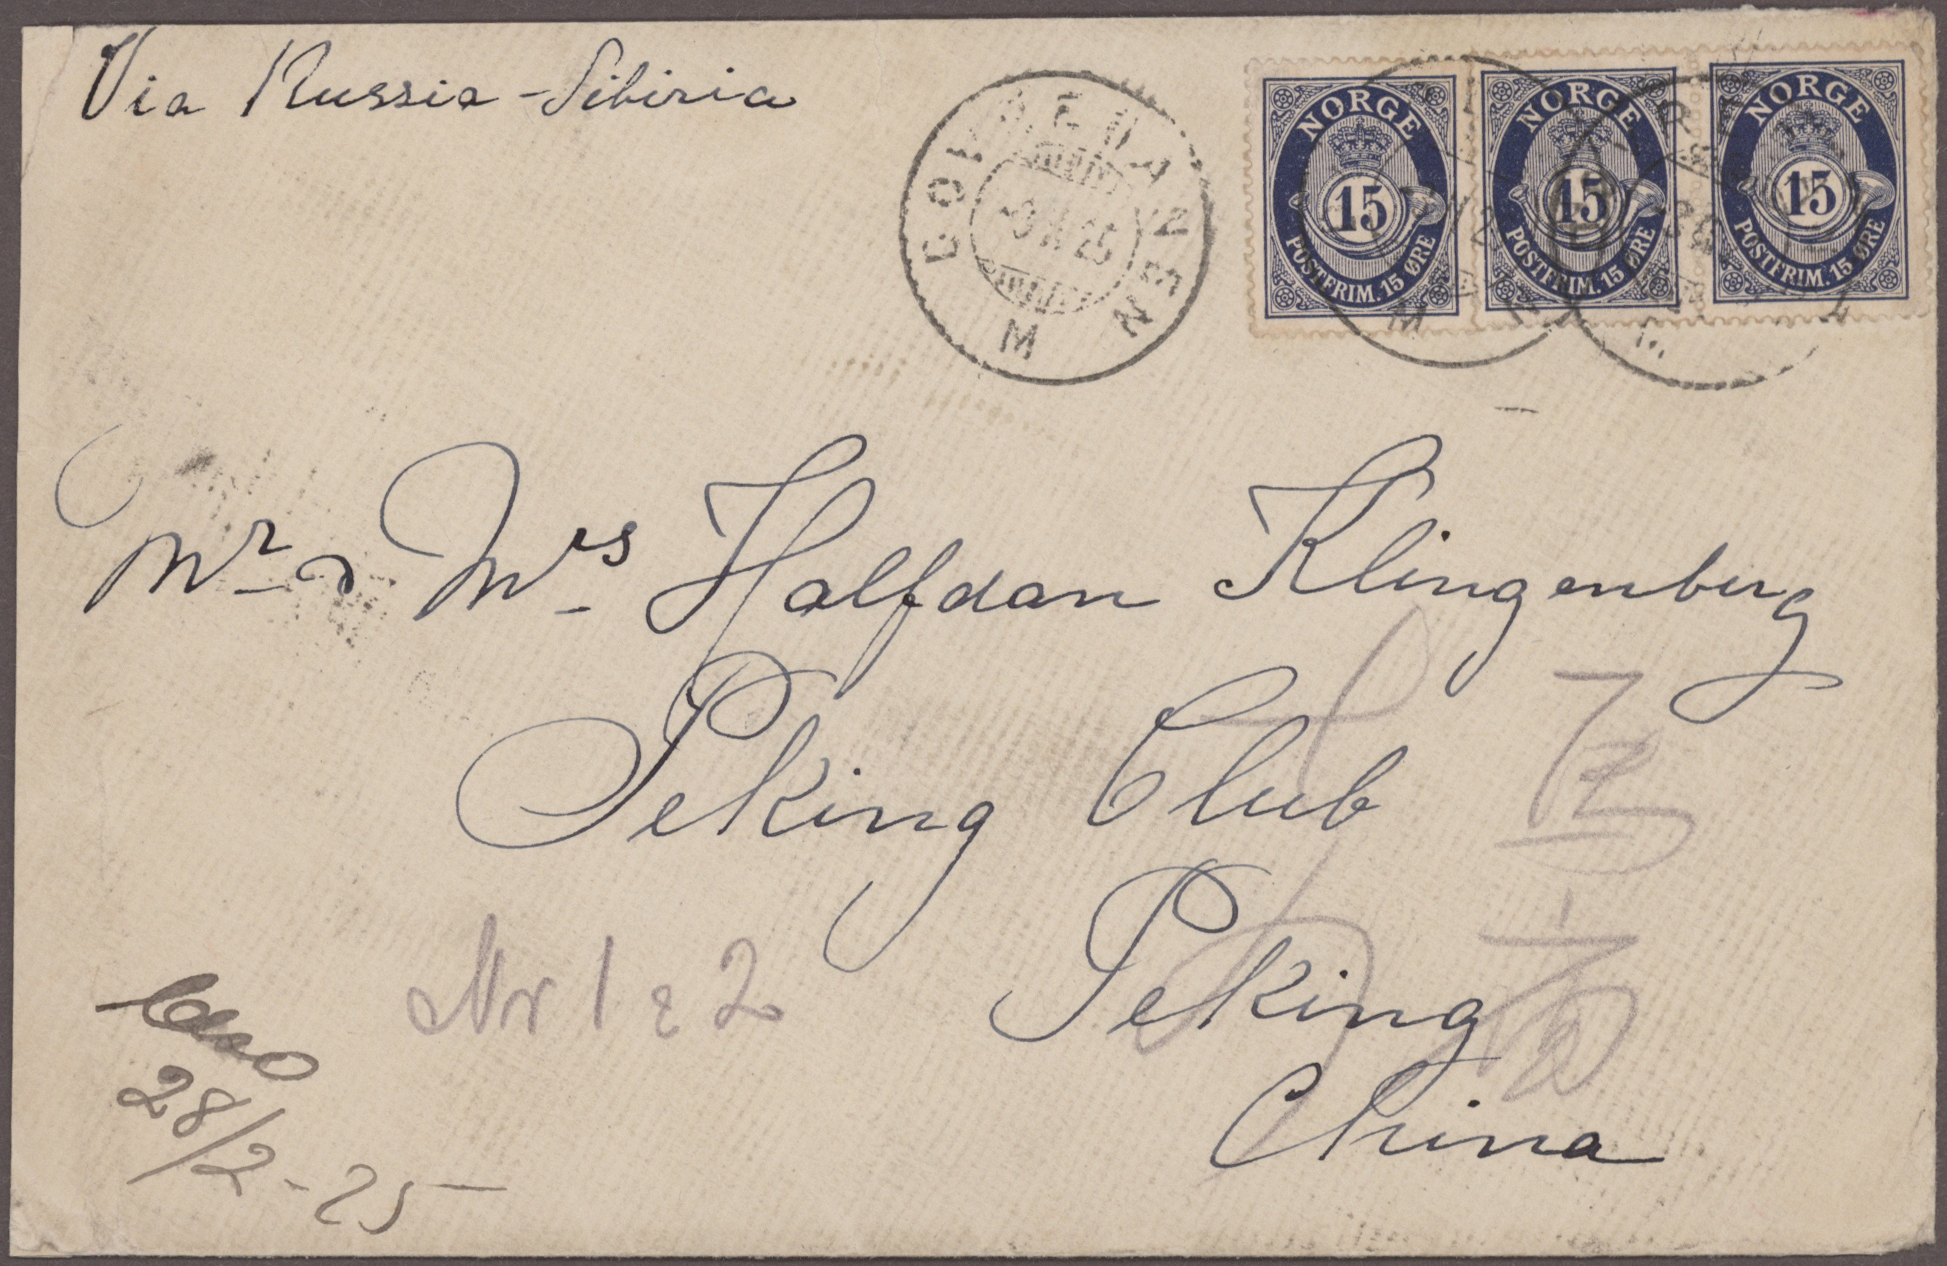 Via Russia-Sibiria
COPENHAVNEN
M
25
NORGE
15
POSTFRIM. 15 ØRE
NORGE
15
POSTFRIM. 15 ØRE
NORGE
15
POSTFRIM. 15 ØRE
M
Mr & Mrs Halfdan Klingenberg
Peking Club
Peking
China
Nr 1 & 2
28/2-25